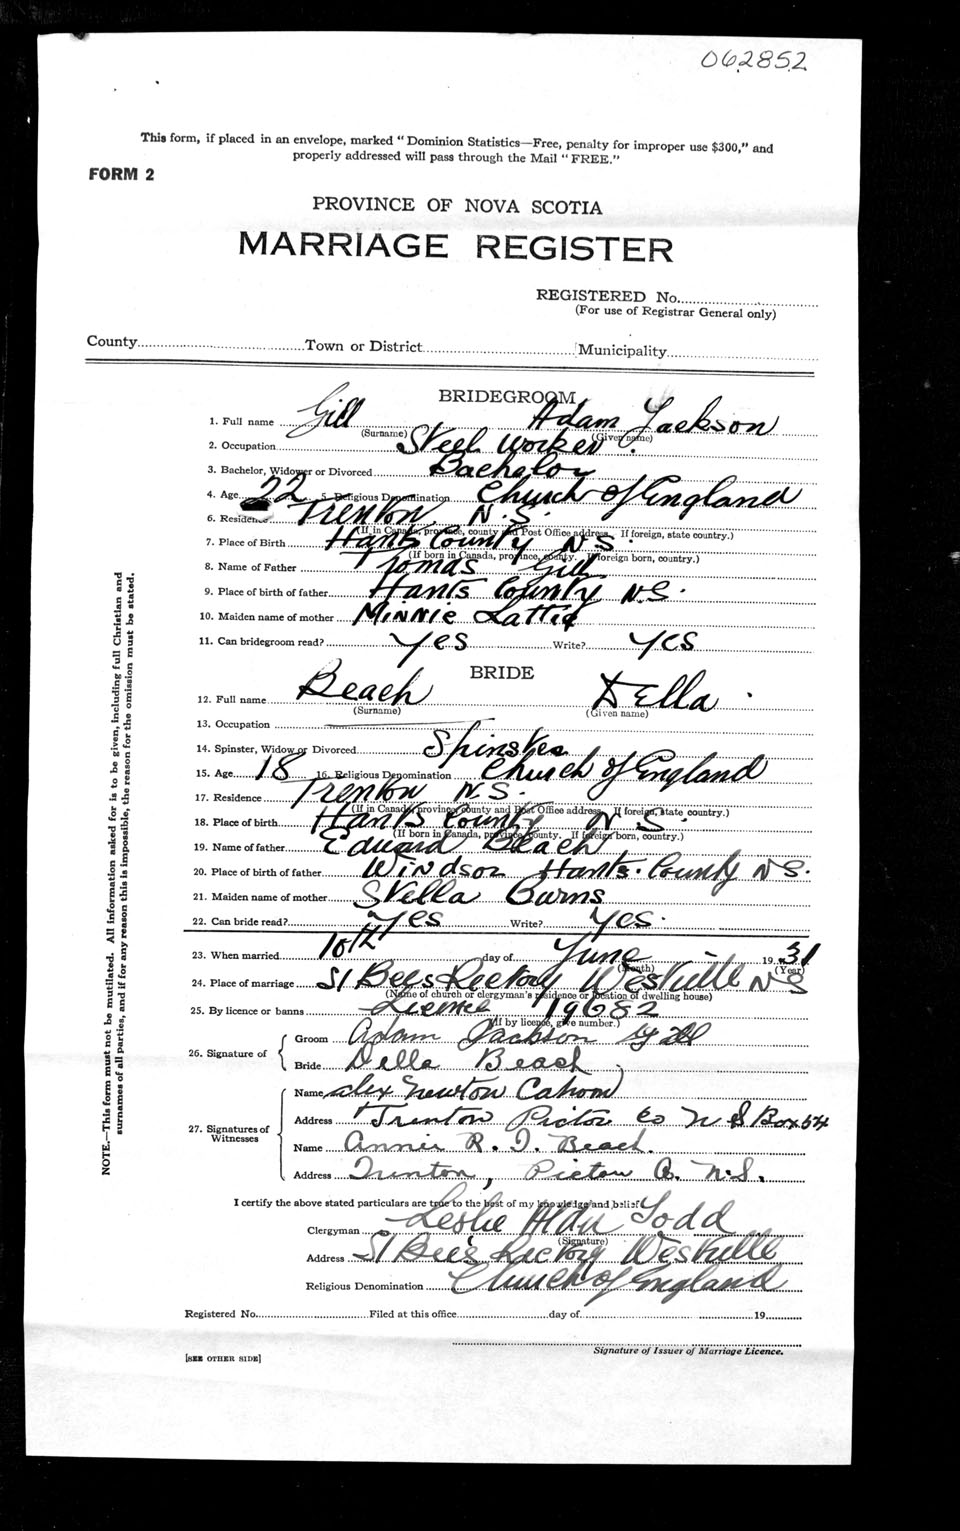 062852
This form, if placed in an envelope, marked "Dominion Statistics—Free, penalty for improper use $300," and
properly addressed will pass through the Mail "FREE."
FORM 2
PROVINCE OF NOVA SCOTIA
MARRIAGE REGISTER
REGISTERED No.
(For use of Registrar General only)
County Town or District Municipality
BRIDEGROOM
1. Full name Gill Adam Jackson
(Surname) (Given name)
2. Occupation Steel Worker.
3. Bachelor, Widower or Divorced Bachelor
4. Age 22 5. Religious Denomination Church of England
6. Residence Trenton N.S.
(If in Canada, province, county and Post Office address. If foreign, state country.)
7. Place of Birth Hants County N.S.
(If born in Canada, province, county. If foreign born, country.)
8. Name of Father Tomas Gill
9. Place of birth of father Hants County N.S.
10. Maiden name of mother Minnie Lattie
11. Can bridegroom read? Yes Write? Yes
BRIDE
12. Full name Beach Della
(Surname) (Given name)
13. Occupation
14. Spinster, Widow or Divorced Spinster
15. Age 18 16. Religious Denomination Church of England
17. Residence Trenton N.S.
(If in Canada, province, county and Post Office address. If foreign, state country.)
18. Place of birth Hants County N.S.
(If born in Canada, province, county. If foreign born, country.)
19. Name of father Edward Beach
20. Place of birth of father Windsor Hants. County N S.
21. Maiden name of mother Stella Burns
22. Can bride read? Yes Write? Yes.
23. When married 10th day of June 19 31
(Month) (Year)
24. Place of marriage St Bees Rectory Westville N S
(Name of church or clergyman's residence or location of dwelling house)
25. By licence or banns Licence 19682
(If by licence, give number.)
26. Signature of
Groom Adam Jackson Gill
Bride Della Beach
27. Signatures of Witnesses
Name Alex Newton Cahoon
Address Trenton Pictou Co N S Box 54
Name Annie R. I. Beach.
Address Trenton, Pictou Co. N.S.
I certify the above stated particulars are true to the best of my knowledge and belief.
Clergyman Leslie Todd
(Signature)
Address St Bee's Rectory Westville
Religious Denomination Church of England
Registered No. Filed at this office day of 19
Signature of Issuer of Marriage Licence.
[SEE OTHER SIDE]
NOTE.—This form must not be mutilated. All information asked for is to be given, including full Christian and
surnames of all parties, and if for any reason this is impossible, the reason for the omission must be stated.